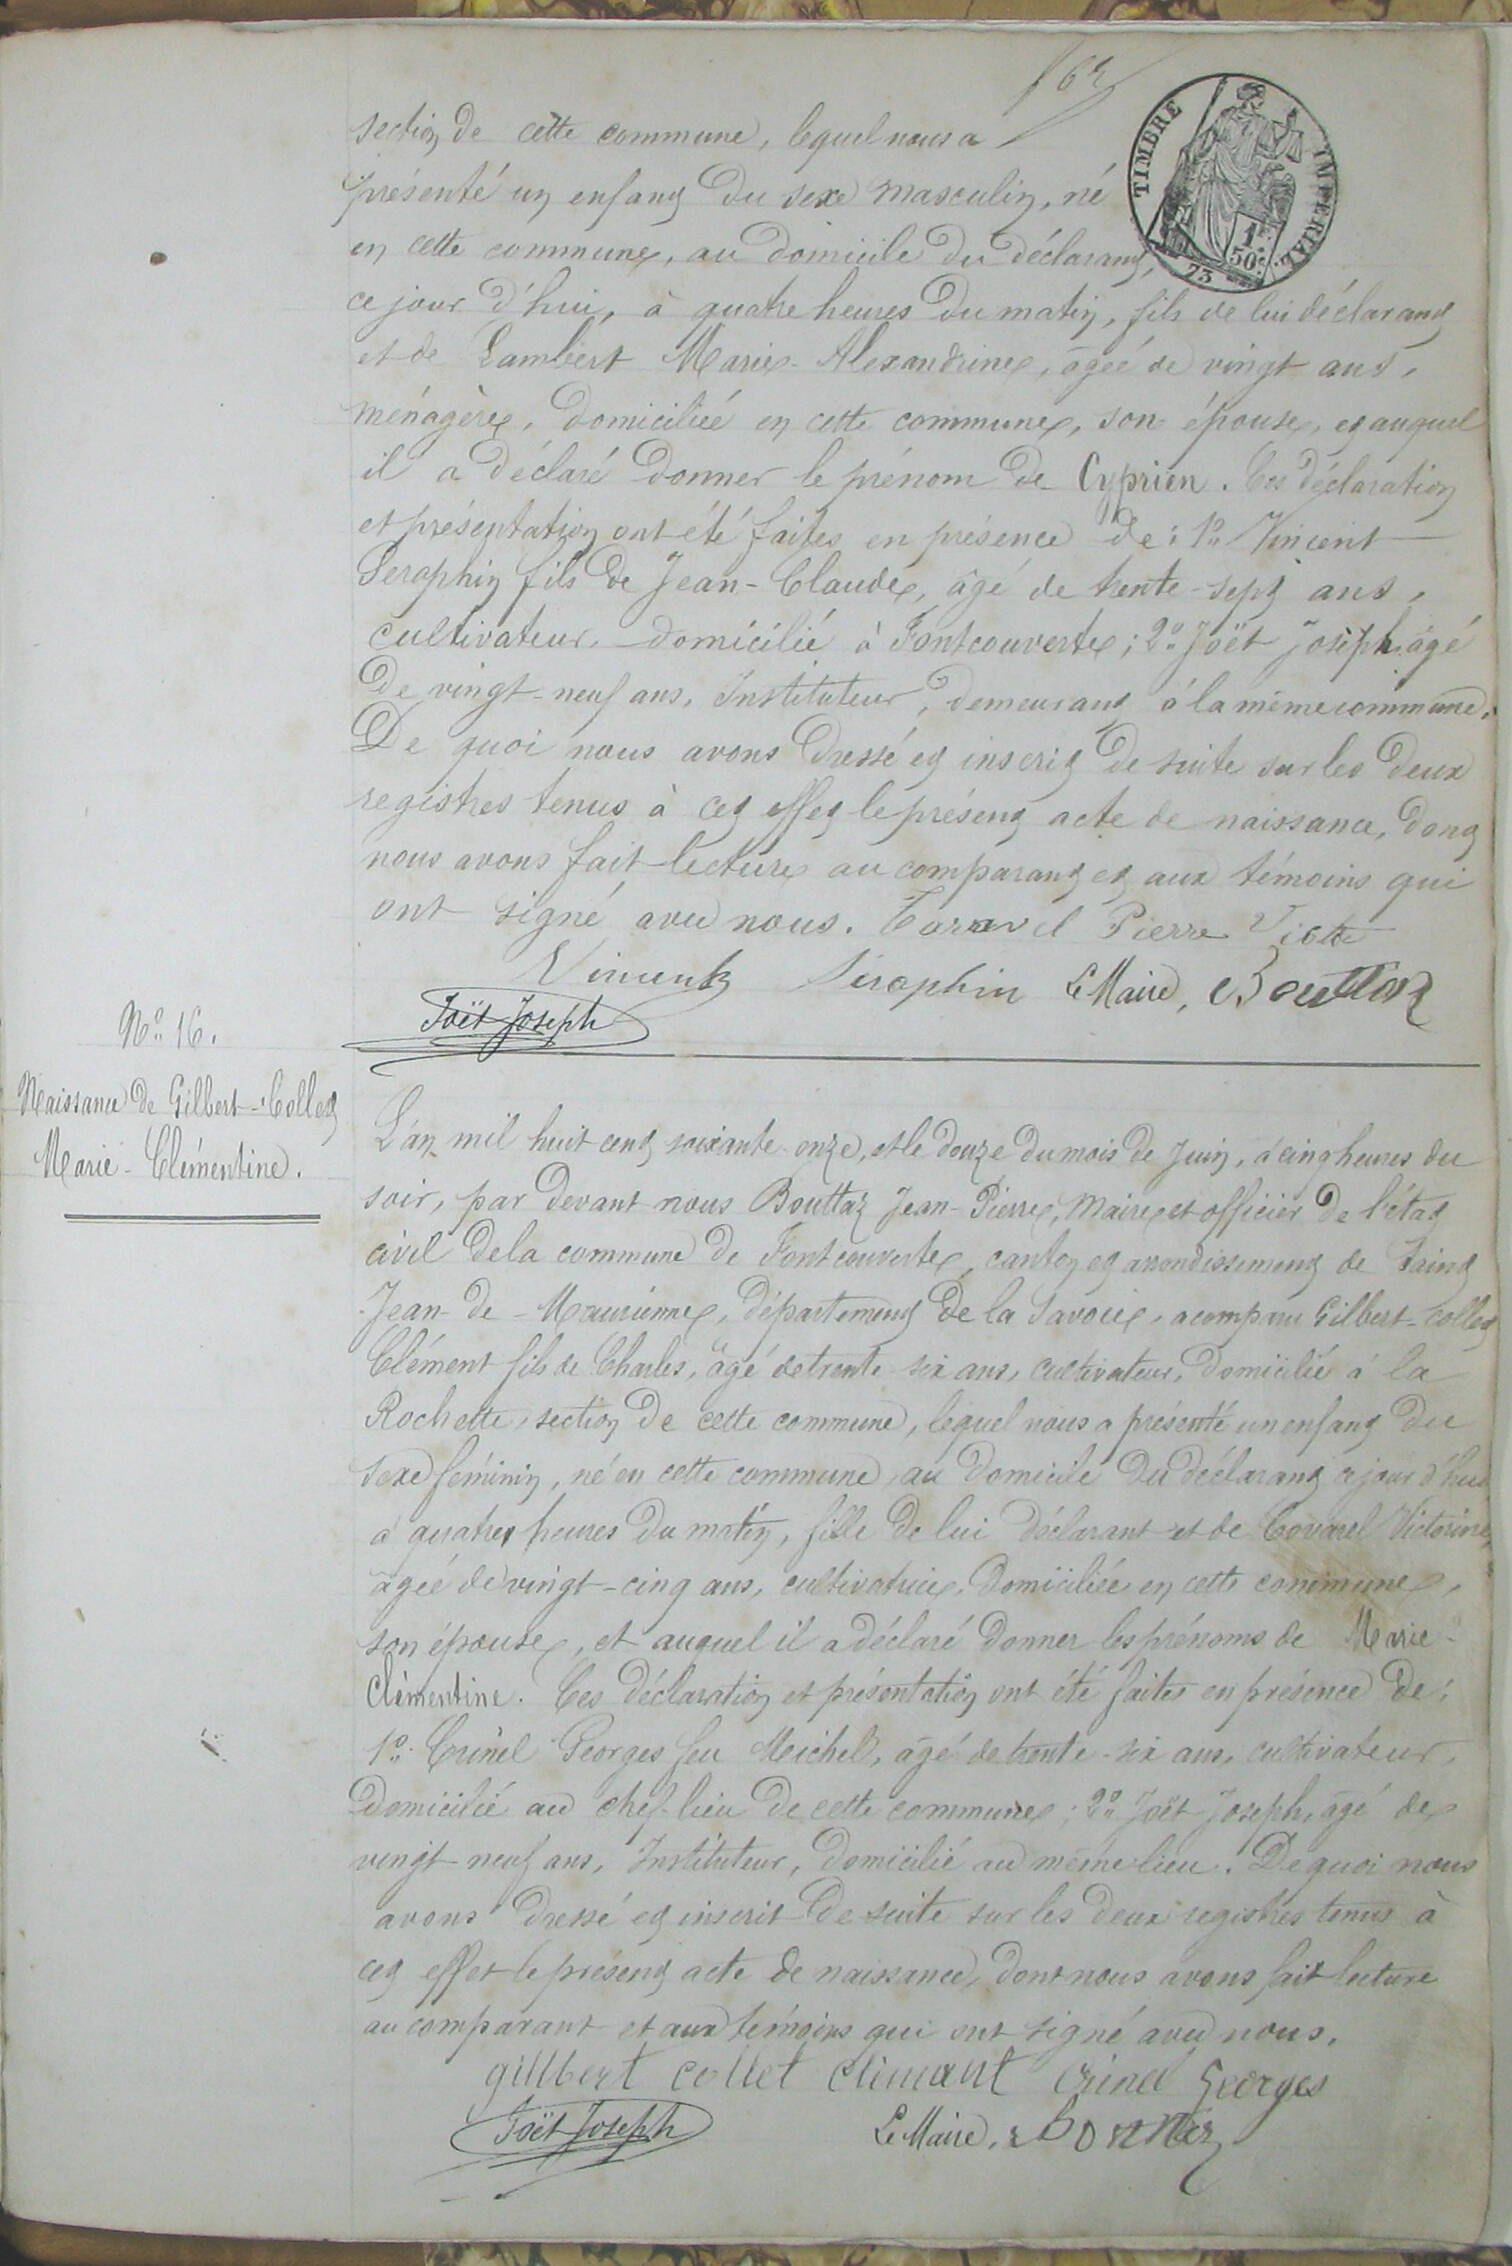 162
TIMBRE IMPERIAL
1F
50c.
73
section de cette commune, lequel nous a
présenté un enfant du sexe masculin, né
en cette commune, au domicile du déclarant,
ce jour d'hui, à quatre heures du matin, fils de lui déclarant
et de Lambert Marie-Alexandrine, âgée de vingt ans,
ménagère, domiciliée en cette commune, son épouse, et auquel
il a déclaré donner le prénom de Cyprien. Ces déclaration
et présentation ont été faites en présence de: 1o Vincent
Seraphin fils de Jean-Claude, âgé de trente-sept ans,
cultivateur, domicilié à Fontcouverte; 2o Joët Joseph âgé
de vingt-neuf ans, Instituteur, demeurant à la même commune.
De quoi nous avons dressé et inscrit de suite sur les deux
registres tenus à cet effet le présent acte de naissance, dont
nous avons fait lecture au comparant et aux témoins qui
ont signé avec nous. Taravel Pierre
Vincent Séraphin Le Maire, Bouttaz
Joët Joseph
No 16.
Naissance de Gilbert-Collet
Marie-Clémentine.
L'an mil huit cent soixante-onze, et le douze du mois de Juin, à cinq heures du
soir, par devant nous Bouttaz Jean-Pierre, Maire et officier de l'état
civil de la commune de Fontcouverte, canton et arrondissement de Saint
Jean-de-Maurienne, département de la Savoie, a comparu Gilbert-Collet
Clément fils de Charles, âgé de trente-six ans, cultivateur, domicilié à la
Rochette, section de cette commune, lequel nous a présenté un enfant du
sexe féminin, né en cette commune, au domicile du déclarant ce jour d'hui
à quatre heures du matin, fille de lui déclarant et de Covarel Victorine,
âgée de vingt-cinq ans, cultivatrice, domiciliée en cette commune,
son épouse, et auquel il a déclaré donner les prénoms de Marie-
Clémentine. Ces déclaration et présentation ont été faites en présence de:
1o Crinel Georges feu Michel, âgé de trente-six ans, cultivateur,
domicilié au chef-lieu de cette commune; 2o Joët Joseph, âgé de
vingt neuf ans, Instituteur, domicilié au même lieu. De quoi nous
avons dressé et inscrit de suite sur les deux registres tenus à
cet effet le présent acte de naissance, dont nous avons fait lecture
au comparant et aux témoins qui ont signé avec nous.
gillbert collet climant Crinel Georges
Joët Joseph Le Maire, Bouttaz